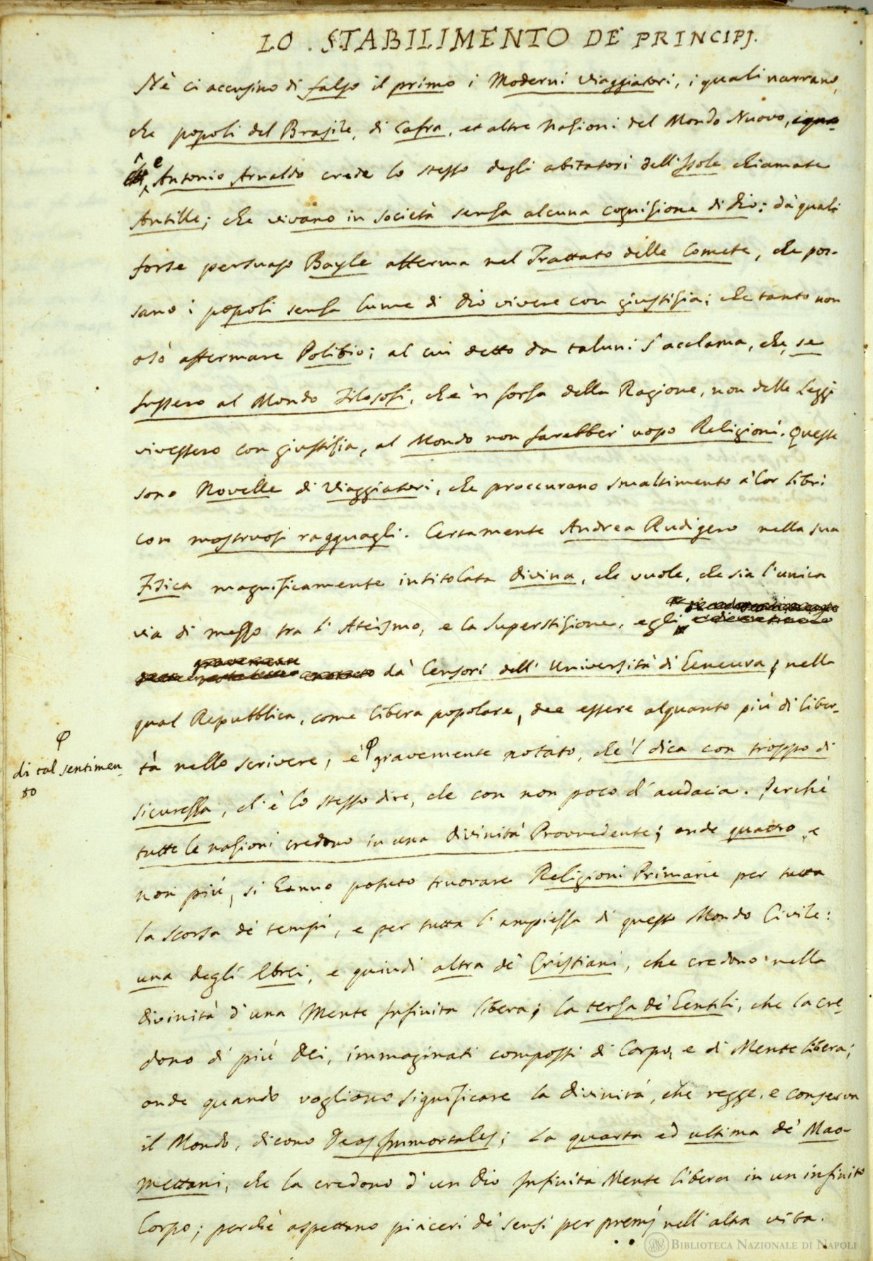 LO . STABILIMENTO DE' PRINCIPJ.
Nè ci accusino di falso il primo i Moderni Viaggiatori, i quali narrano,
che popoli del Brasile, di Cafra, et altre nazioni del Mondo Nuovo,
e Antonio Arnaldo crede lo stesso degli abitatori dell'Isole chiamate
Antille; che vivano in società senza alcuna cognizione di Dio: da' quali
forse persuaso Bayle afferma nel Trattato delle Comete, che pos-
sano i popoli senza lume di Dio vivere con giustizia; che tanto non
osò affermare Polibio; al cui detto da taluni s'acclama, che, se
fussero al Mondo Filosofi, che'n forza della Ragione, non delle Leggi
vivessero con giustizia, al Mondo non farebber uopo Religioni. Queste
sono Novelle di Viaggiatori, che proccurano smaltimento a' lor libri
con mostruosi ragguagli. Certamente Andrea Rudigero nella sua
Fisica magnificamente intitolata divina, che vuole, che sia l'unica
via di mezzo tra l'Ateismo, e la Superstizione, egli
gravemente
da' Censori dell'Università di Genevra, nella
qual Repubblica, come libera popolare, dee essere alquanto più di liber-
di tal sentimen-
to
tà nello scrivere, è gravemente notato, che'l dica con troppo di
sicurezza, ch'è lo stesso dire, che con non poco d'audacia. Perchè
tutte le nazioni credono in una Divinità Provvedente; onde quattro, e
non più, si hanno potuto truovare Religioni Primarie per tutta
la scorsa de' tempi, e per tutta l'ampiezza di questo Mondo Civile:
una degli Ebrei, e quindi altra de' Cristiani, che credono nella
divinità d'una Mente Infinita libera; la terza de' Gentili, che la cre-
dono di più dei, immaginati composti di Corpo, e di Mente libera;
onde quando vogliono significare la divinità, che regge, e conserva
il Mondo, dicono Deos Immortales; La quarta ed ultima de' Mao-
mettani, che la credono d'un Dio Infinita Mente libera in un infinito
Corpo; perchè aspettano piaceri de' sensi per premj nell'altra vita.
BIBLIOTECA NAZIONALE DI NAPOLI